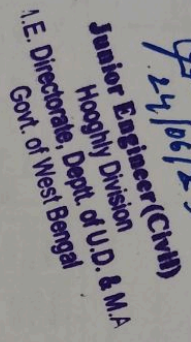 24/06/2
Junior Engineer(Civil)
Hooghly Division
.E. Directorate, Deptt. of U.D. & M.A
Govt. of West Bengal